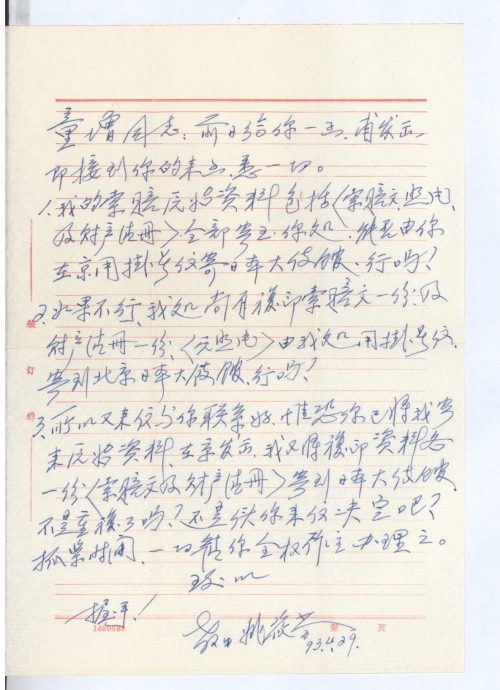 童增同志：前日给你一函，甫发出，
即接到你的来函，悉一切。
1.我的索赔反将资料包括〈索赔文，照片，
及财产清册〉全部寄至你处，能否由你
在京用掛号信寄日本大使馆，行吗？
2.如果不行，我处尚有複印索赔文一份及
财产清册一份，〈无照片〉由我处用掛号信，
寄到北京日本大使馆，行吗？
3.所以又来信与你联系好，惟恐你已将我寄
来资料，在京发出，我又将複印资料各
一份〈索赔文及财产清册〉寄到日本大使馆，
不是重複了吗？不是候你来信决定吧？
抓紧时间，一切能你全权作主办理之。
致以
握手！
姚
93.4.29.
装
订
线
1480083
第 页